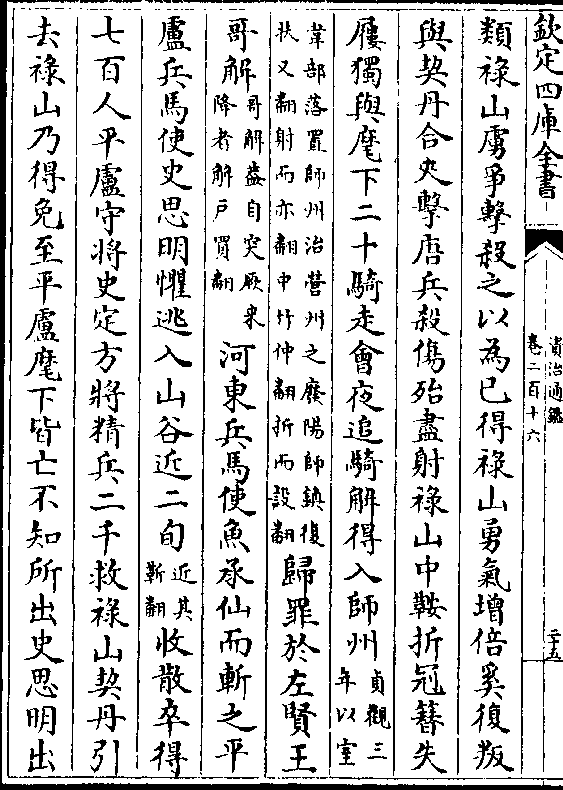 欽定四庫全書
資治通鑑
卷二百十六
二十五
類祿山虜爭擊殺之以為已得祿山勇氣增倍奚復叛
與契丹合夾擊唐兵殺傷殆盡射祿山中鞍折冠簪失
屨獨與麾下二十騎走會夜追騎解得入師州貞觀三年以室
韋部落置師州治營州之廢陽師鎮復扶又翻射而亦翻中竹仲翻折而設翻歸罪於左賢王
哥解哥解蓋自突厥來降者解戸買翻河東兵馬使魚承仙而斬之平
盧兵馬使史思明懼逃入山谷近二旬近其靳翻收散卒得
七百人平盧守將史定方將精兵二千救祿山契丹引
去祿山乃得免至平盧麾下皆亡不知所出史思明出